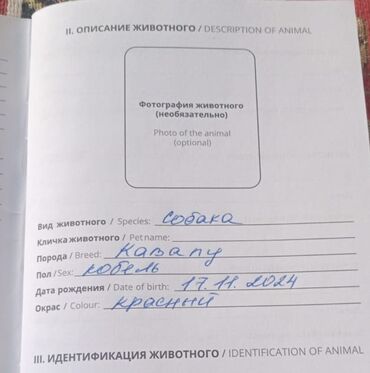 II. ОПИСАНИЕ ЖИВОТНОГО / DESCRIPTION OF ANIMAL
Фотография животного
(необязательно)
Photo of the animal
(optional)
Вид животного / Species: собака
Кличка животного / Pet name:
Порода / Breed: Кавапу
Пол / Sex: кобель
Дата рождения / Date of birth: 17.11.2024
Окрас / Colour: красный
III. ИДЕНТИФИКАЦИЯ ЖИВОТНОГО / IDENTIFICATION OF ANIMAL